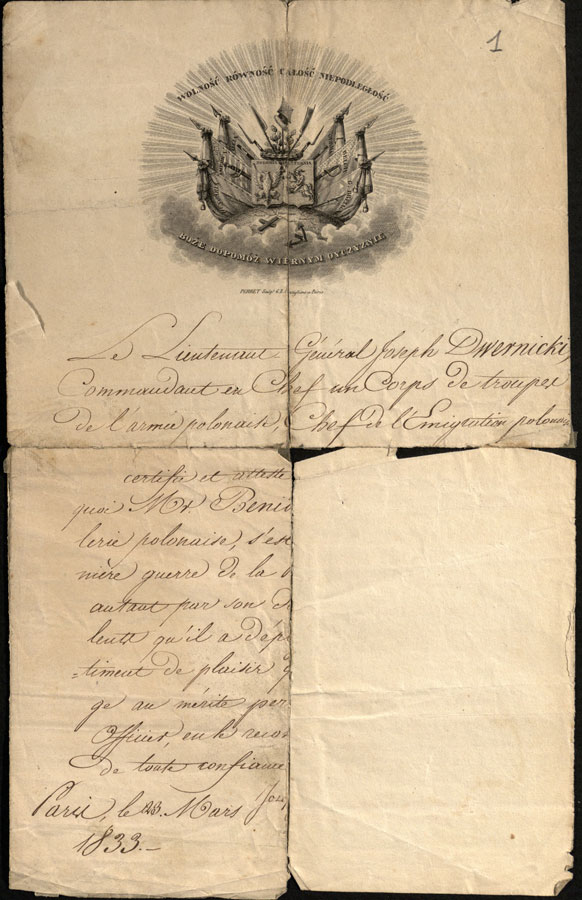 1
WOLNOŚĆ RÓWNOŚĆ CAŁOŚĆ NIEPODLEGŁOŚĆ
BOŻE DOPOMÓŻ WIERNYM OYCZYZNIE
PERRET
Le Lieutenant Général Joseph Dwernicki,
Commandant en Chef un Corps de troupes
de l'armée polonaise, Chef de l'Emigration polonai
certifie et atteste
quoi Mr Beni
lerie polonaise, s'est
nière guerre de la
autant par son
lents qu'il a dép
=timent de plaisir
ge au mérite per
Officier, en le recom
de toute confiance
Paris, le 23 Mars
1833.-